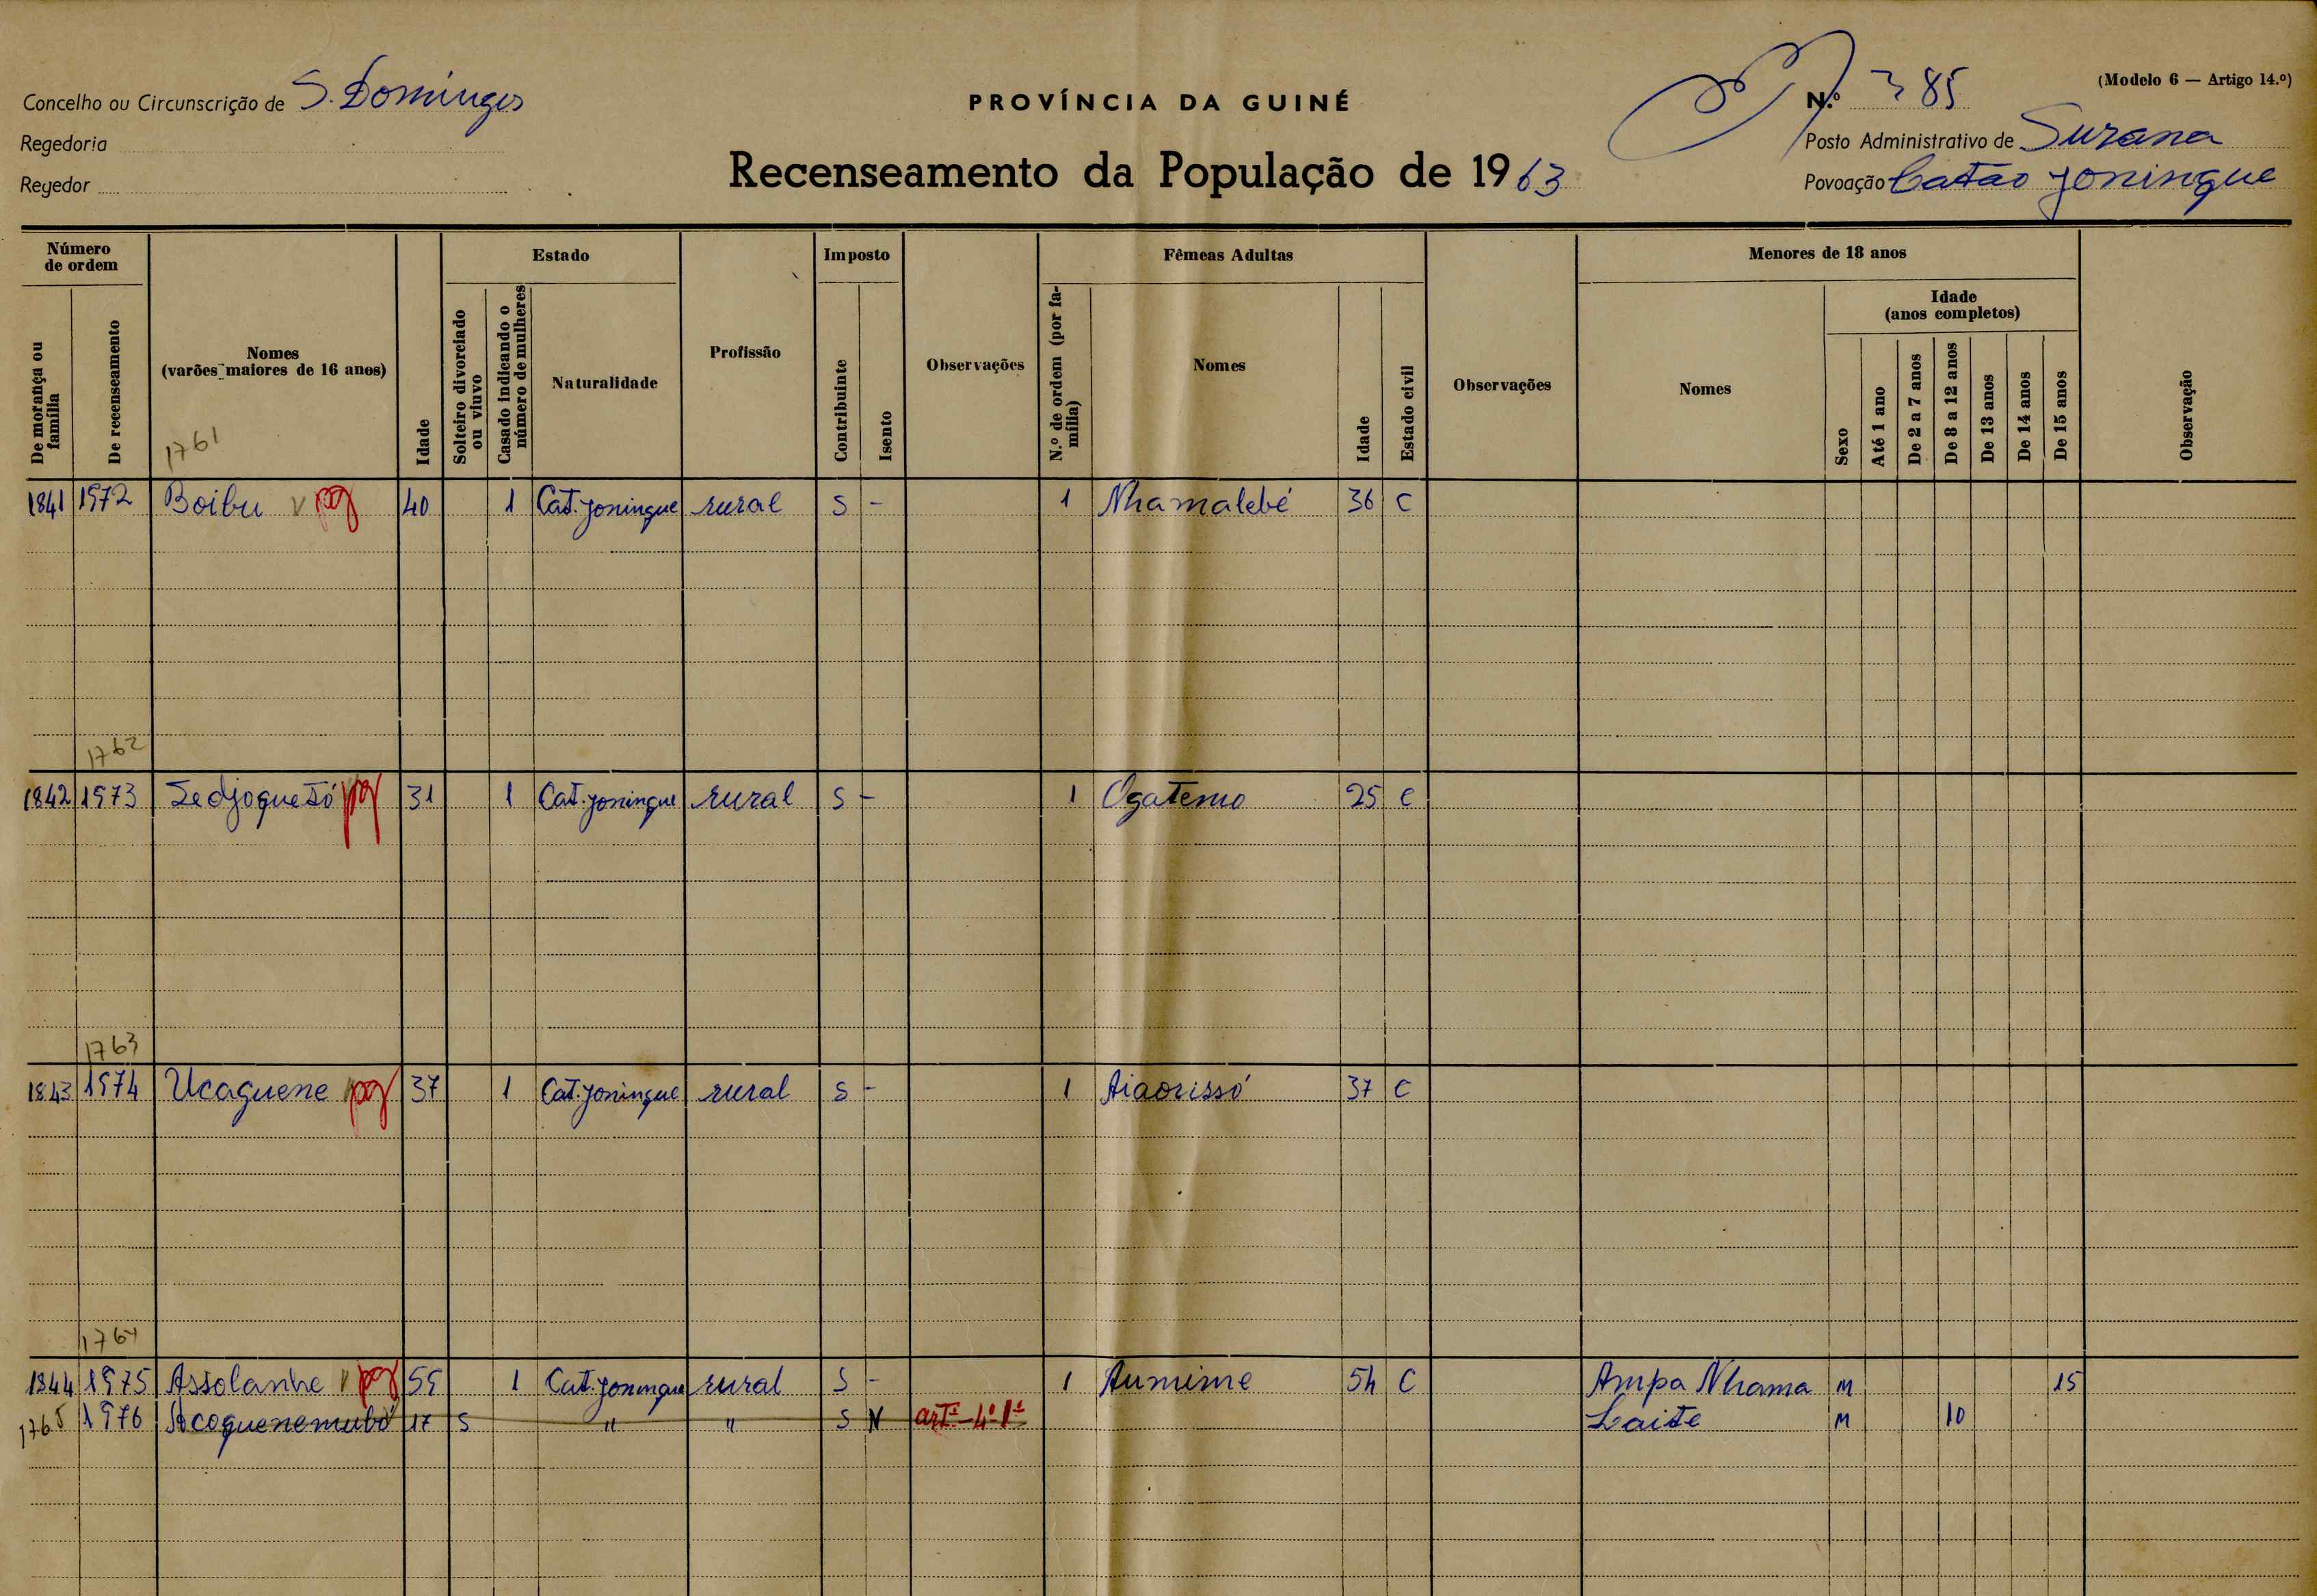 (Modelo 6 — Artigo 14.º)
Concelho ou Circunscrição de S. Domingos
PROVÍNCIA DA GUINÉ
N.º 385
Regedoria
Posto Administrativo de Suzana
Regedor
Recenseamento da População de 1963
Povoação Catão Joningue
Número de ordem
Estado
Imposto
Fêmeas Adultas
Menores de 18 anos
De morança ou família
De recenseamento
Nomes (varões maiores de 16 anos)
Idade
Solteiro divorciado ou viuvo
Casado indicando o número de mulheres
Naturalidade
Profissão
Contribuinte
Isento
Observações
N.º de ordem (por família)
Nomes
Idade
Estado civil
Observações
Nomes
Sexo
Idade (anos completos)
Até 1 ano
De 2 a 7 anos
De 8 a 12 anos
De 13 anos
De 14 anos
De 15 anos
Observação
1761
1841 1972 Boibu v pg 40 1 Cat. Joningue rural S - 1 Nhamalebé 36 C
1762
1842 1973 Sedjoquetó pg 31 1 Cat. Joningue rural S - 1 Ogatemo 25 C
1763
1843 1974 Ucaguene pg 37 1 Cat. Joningue rural S - 1 Aiaorissó 37 C
1764
1844 1975 Assolanhe v pg 55 1 Cat. Joningue rural S - 1 Aumime 54 C Ampa Nhama M 15
1765 1976 Acoquenemubo 17 S " " S N artº-4º-1º Laite M 10